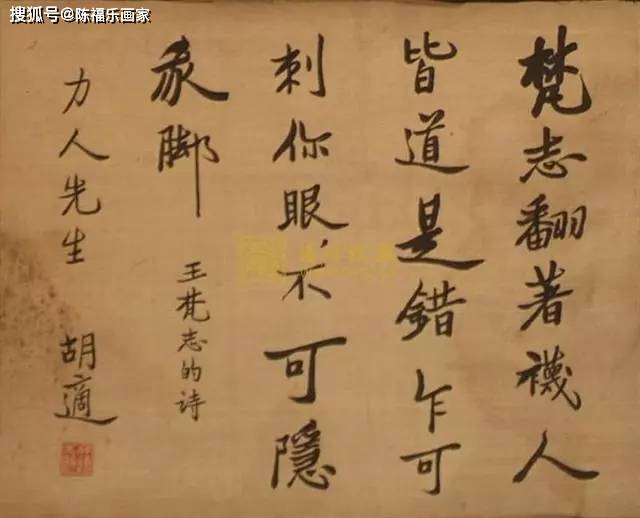 搜狐号@陈福乐画家
梵志翻著襪人
皆道是錯乍可
刺你眼，不可隱
我脚
王梵志的诗
力人先生
胡適